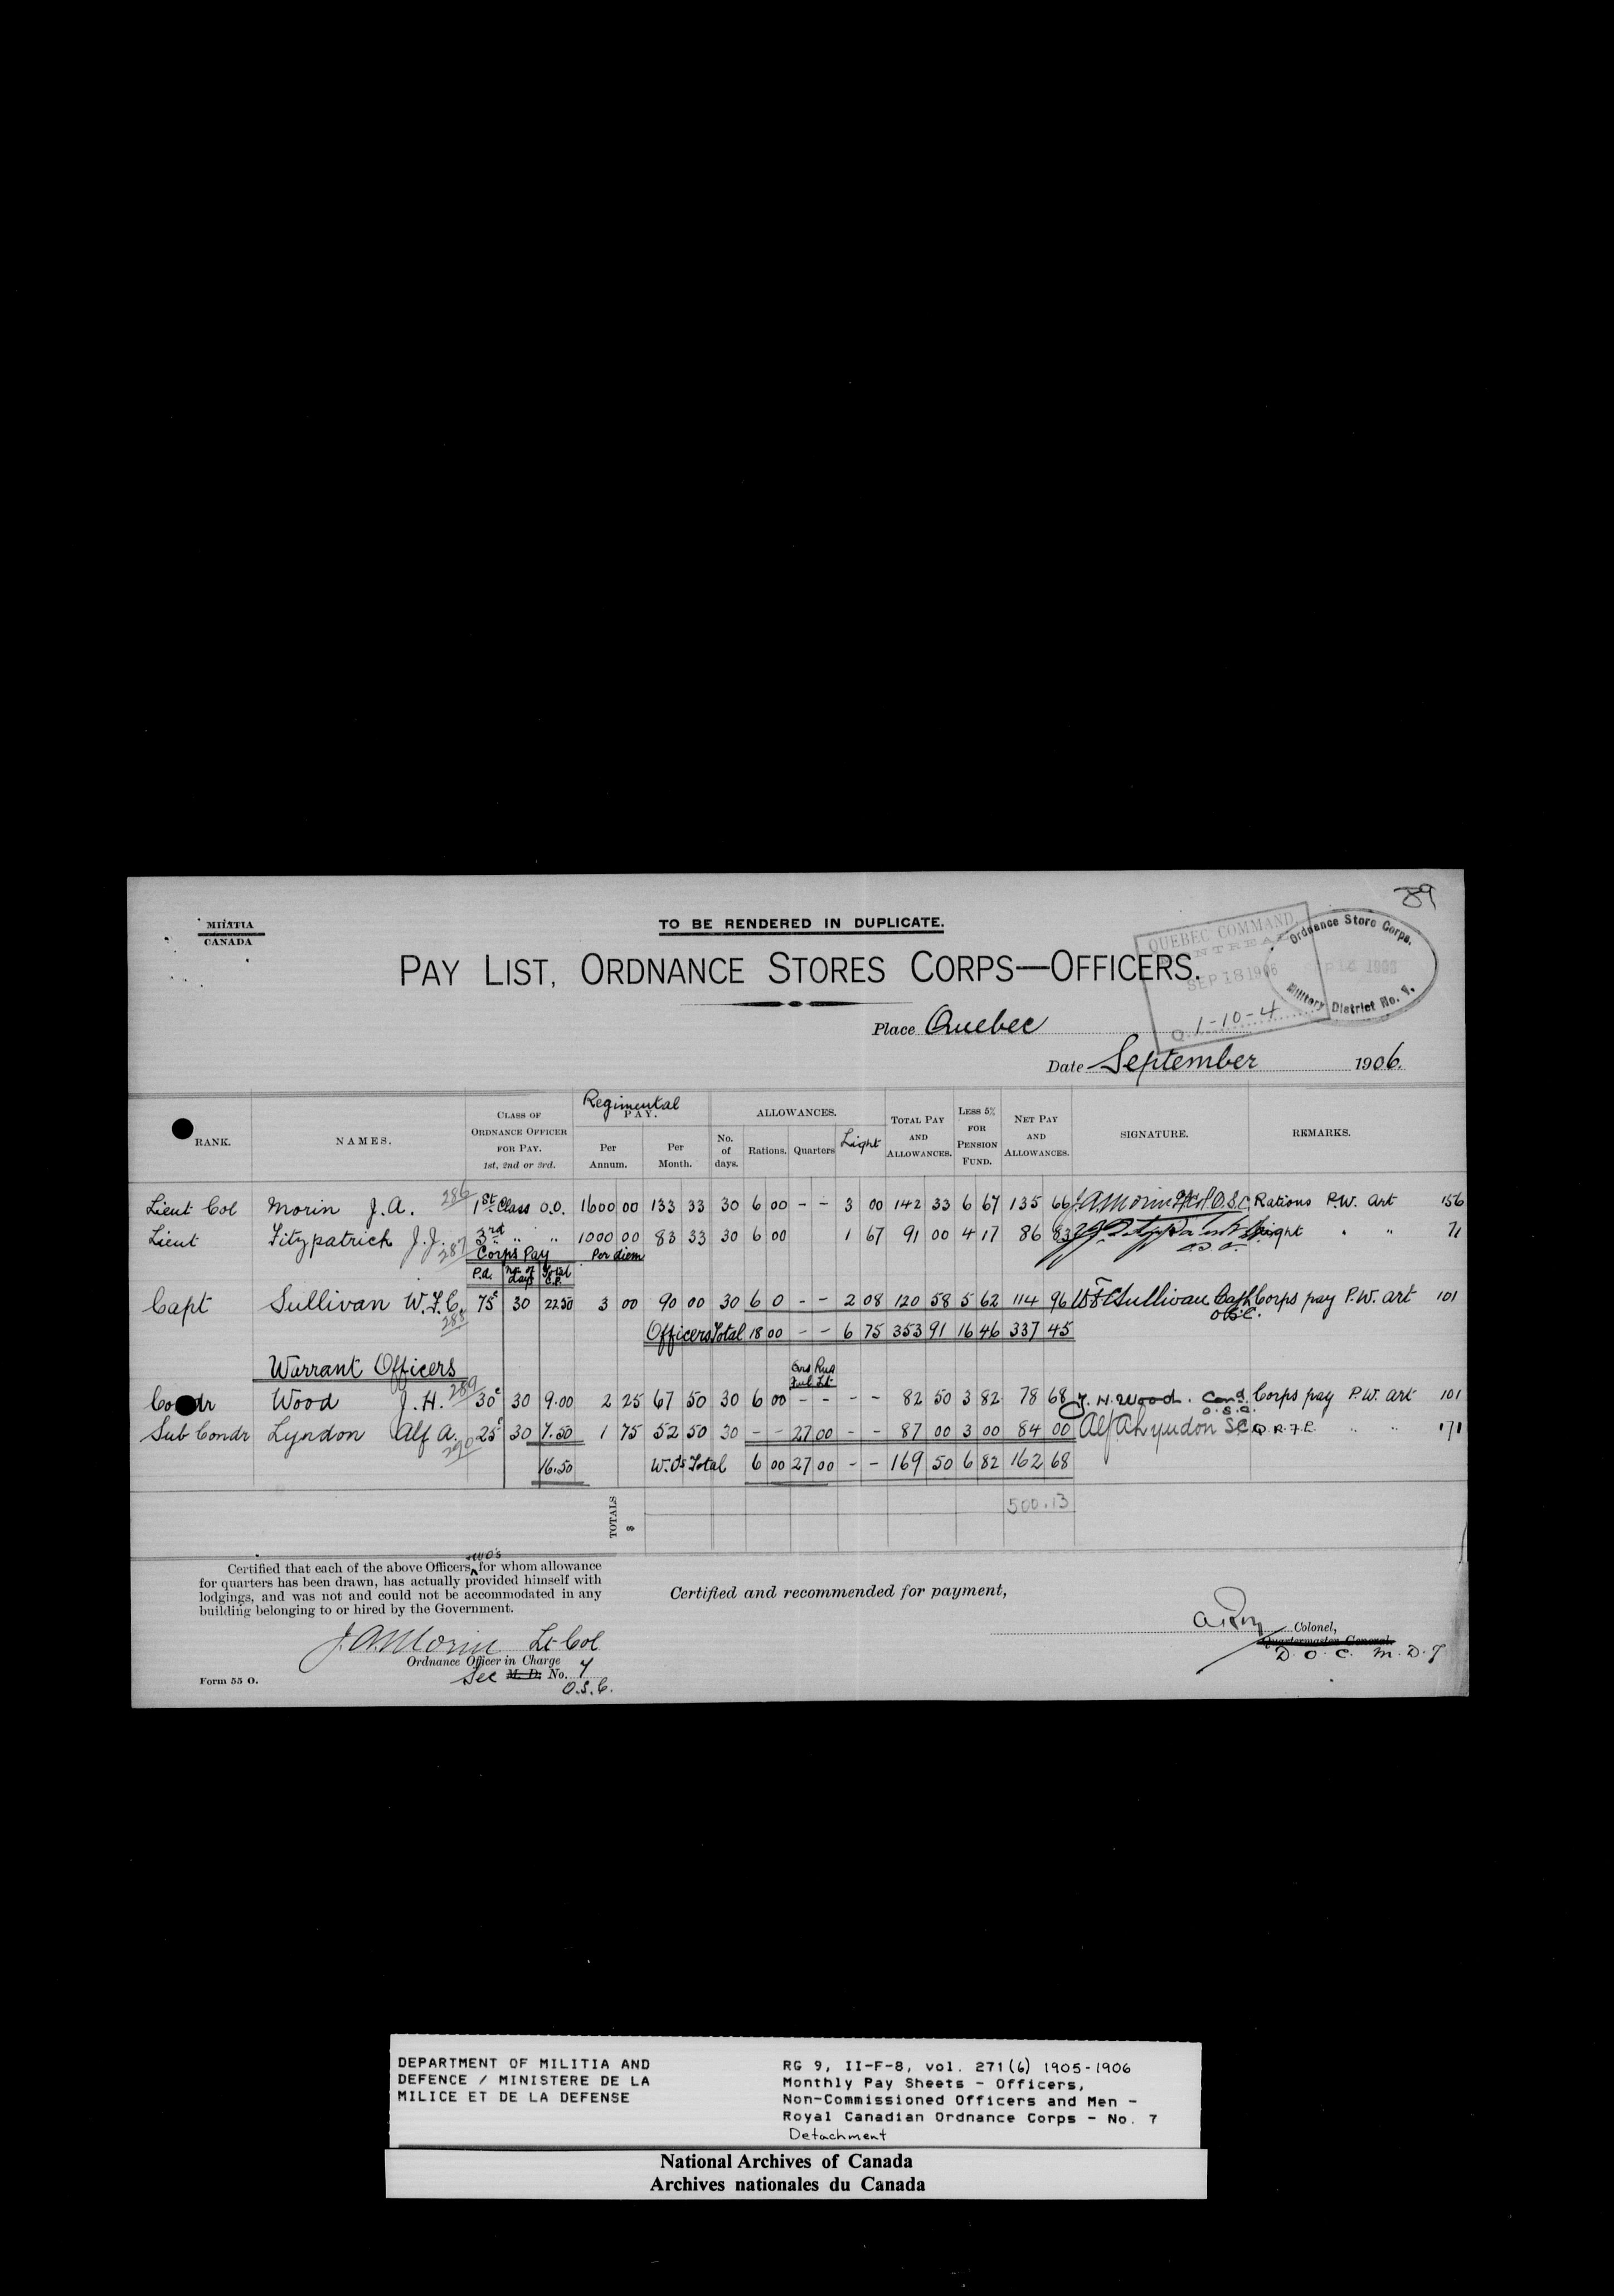 89
MILITIA
CANADA
TO BE RENDERED IN DUPLICATE.
PAY LIST, ORDNANCE STORES CORPS—OFFICERS.
QUEBEC COMMAND
MONTREAL
SEP 18 1906
Q. 1-10-4
Ordnance Store Corps.
1906
Military District No. 7.
Place Quebec
Date September 1906.
RANK. NAMES. CLASS OF ORDNANCE OFFICER FOR PAY. 1st, 2nd or 3rd. Regimental PAY. Per Annum. Per Month. No. of days. ALLOWANCES. Rations. Quarters Light TOTAL PAY AND ALLOWANCES. LESS 5% FOR PENSION FUND. NET PAY AND ALLOWANCES. SIGNATURE. REMARKS.
Lieut Col Morin J.A. 286 1st Class O.O. 1600 00 133 33 30 6 00 - - 3 00 142 33 6 67 135 66 J.A. Morin Lt Col O.S.C. Rations P.W. Art 156
Lieut Fitzpatrick J.J. 287 3rd " " 1000 00 83 33 30 6 00 1 67 91 00 4 17 86 83 Light " " 71
Corps Pay Per diem
P.d. No. of days Total C.P.
Capt Sullivan W.F.C. 288 75c 30 22 50 3 00 90 00 30 6 0 - - 2 08 120 58 5 62 114 96 W F C Sullivan Capt O.S.C. Corps pay P.W. art 101
Officers Total 18 00 - - 6 75 353 91 16 46 337 45
Warrant Officers
Condr Wood J.H. 289 30c 30 9.00 2 25 67 50 30 6 00 - - - - 82 50 3 82 78 68 J. H. Wood. Cond. O.S.C. Corps pay P.W. art 101
Sub Condr Lyndon Alf A. 290 25c 30 7.50 1 75 52 50 30 - - 27 00 - - 87 00 3 00 84 00 Alf A Lyndon S.C. Q.R.F.L. " " 171
16.50 W.Os Total 6 00 27 00 - - 169 50 6 82 162 68
TOTALS $ 500.13
Certified that each of the above Officers & WO's for whom allowance
for quarters has been drawn, has actually provided himself with
lodgings, and was not and could not be accommodated in any
building belonging to or hired by the Government.
J.A. Morin Lt-Col
Ordnance Officer in Charge
Sec M. D. No. 7
O.S.C.
Form 55 O.
Certified and recommended for payment,
A Roy Colonel,
Quartermaster General.
D. O. C. M. D. 7
DEPARTMENT OF MILITIA AND
DEFENCE / MINISTERE DE LA
MILICE ET DE LA DEFENSE
RG 9, II-F-8, vol. 271(6) 1905-1906
Monthly Pay Sheets - Officers,
Non-Commissioned Officers and Men -
Royal Canadian Ordnance Corps - No. 7
Detachment
National Archives of Canada
Archives nationales du Canada